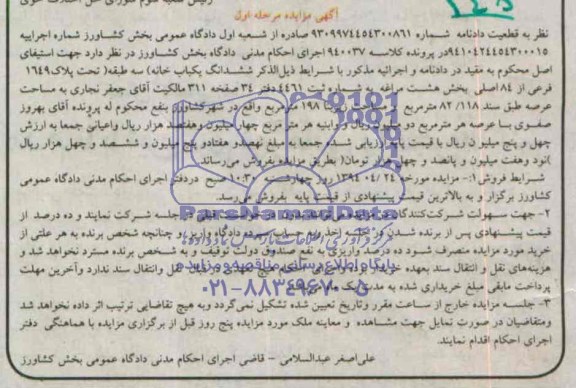 آگهی مزایده مرحله اول
نظر به قطعیت دادنامه شماره ۹۳۰۹۹۷۴۴۵۴۳۰۰۸۶۱ صادره از شعبه اول دادگاه عمومی بخش کشاورز شماره اجراییه
۹۴۱۰۴۲۴۴۵۴۳۰۰۰۱۵ در پرونده کلاسه ۹۴۰۰۳۷ اجرای احکام مدنی دادگاه بخش کشاورز در نظر دارد جهت استیفای
اصل محکوم به مفید در دادنامه و اجرائیه مذکور با شرایط ذیل‌الذکر ششدانگ یکباب خانه) سه طبقه( تحت پلاک ۱۶۴۹
فرعی از ۸۴ اصلی بخش هشت مراغه به شماره ثبت ۴۴۶۱ دفتر ۳۴ صفحه ۳۱۱ مالکیت آقای جعفر نجاری به مساحت
عرصه طبق سند ۸۲/۱۱۸ مترمربع ۱۹۸ مترمربع واقع در شهر کشاورز بنفع محکوم له پرونده آقای بهروز
صفوی بـا عرصه هر مترمربع دو ریال وابنیه هر متر مربع چهار میلیون و هفتصد هزار ریال واعیانی جمعا به ارزش
چهل و پنج میلیون ریال با قیمت پایه ارزیابی شده جمعا به مبلغ نهصدو هفتادو پنج میلیون و ششصد و چهل هزار ریال
)نود وهفت میلیون و پانصد و چهار هزار تومان( بطریق مزایده بفروش می‌رساند
شـرایط فروش ۱:- مزایده مورخه ۱۳۹۴/۰۴/۲۴ روز چهارشنبه ۱۰:۳۰ صبح دردفتر اجرای احکام مدنی دادگاه عمومی
کشاورز برگزار و به بالاترین قیمت پیشنهادی از قیمت پایه بفروش می‌رسد.
۲- جهت سهولت شـرکت‌کنندگان جلسه شـرکت نمایند و ده درصد از
قیمت پیشنهادی پس از برنده شدن در جلسه اخذ و به حساب سپرده دادگاه واریز و چنانچه شخص برنده به هر علتی از
خرید مورد مزایده منصرف شود ده درصد واریزی به نفع صندوق دولت توقیف و به شـخص برنده مسترد نخواهد شد و
هزینه‌های نقل و انتقال سند بعهده خریدار نقل وانتقال سند ندارد وآخرین مهلت
پرداخت مابقی مبلغ خریداری شده به مدت یک
۳- جلسه مزایده خارج از ساعت مقرر وتاریخ تعیین شده تشکیل نمی‌گردد وبه هیچ تقاضایی ترتیب اثر داده نخواهد شد
ومتقاضیان در صورت تمایل جهت مشـاهده و معاینه ملک مورد مزایده پنج روز قبل از برگزاری مزایده با هماهنگی دفتر
اجرای احکام اقدام نمایند.
علی‌اصغر عبدالسلامی - قاضی اجرای احکام مدنی دادگاه عمومی بخش کشاورز
ParsNamadData
پایگاه اطلاع رسانی مناقصه و مزایده
۰۲۱-۸۸۳۴۹۶۷۰-۵